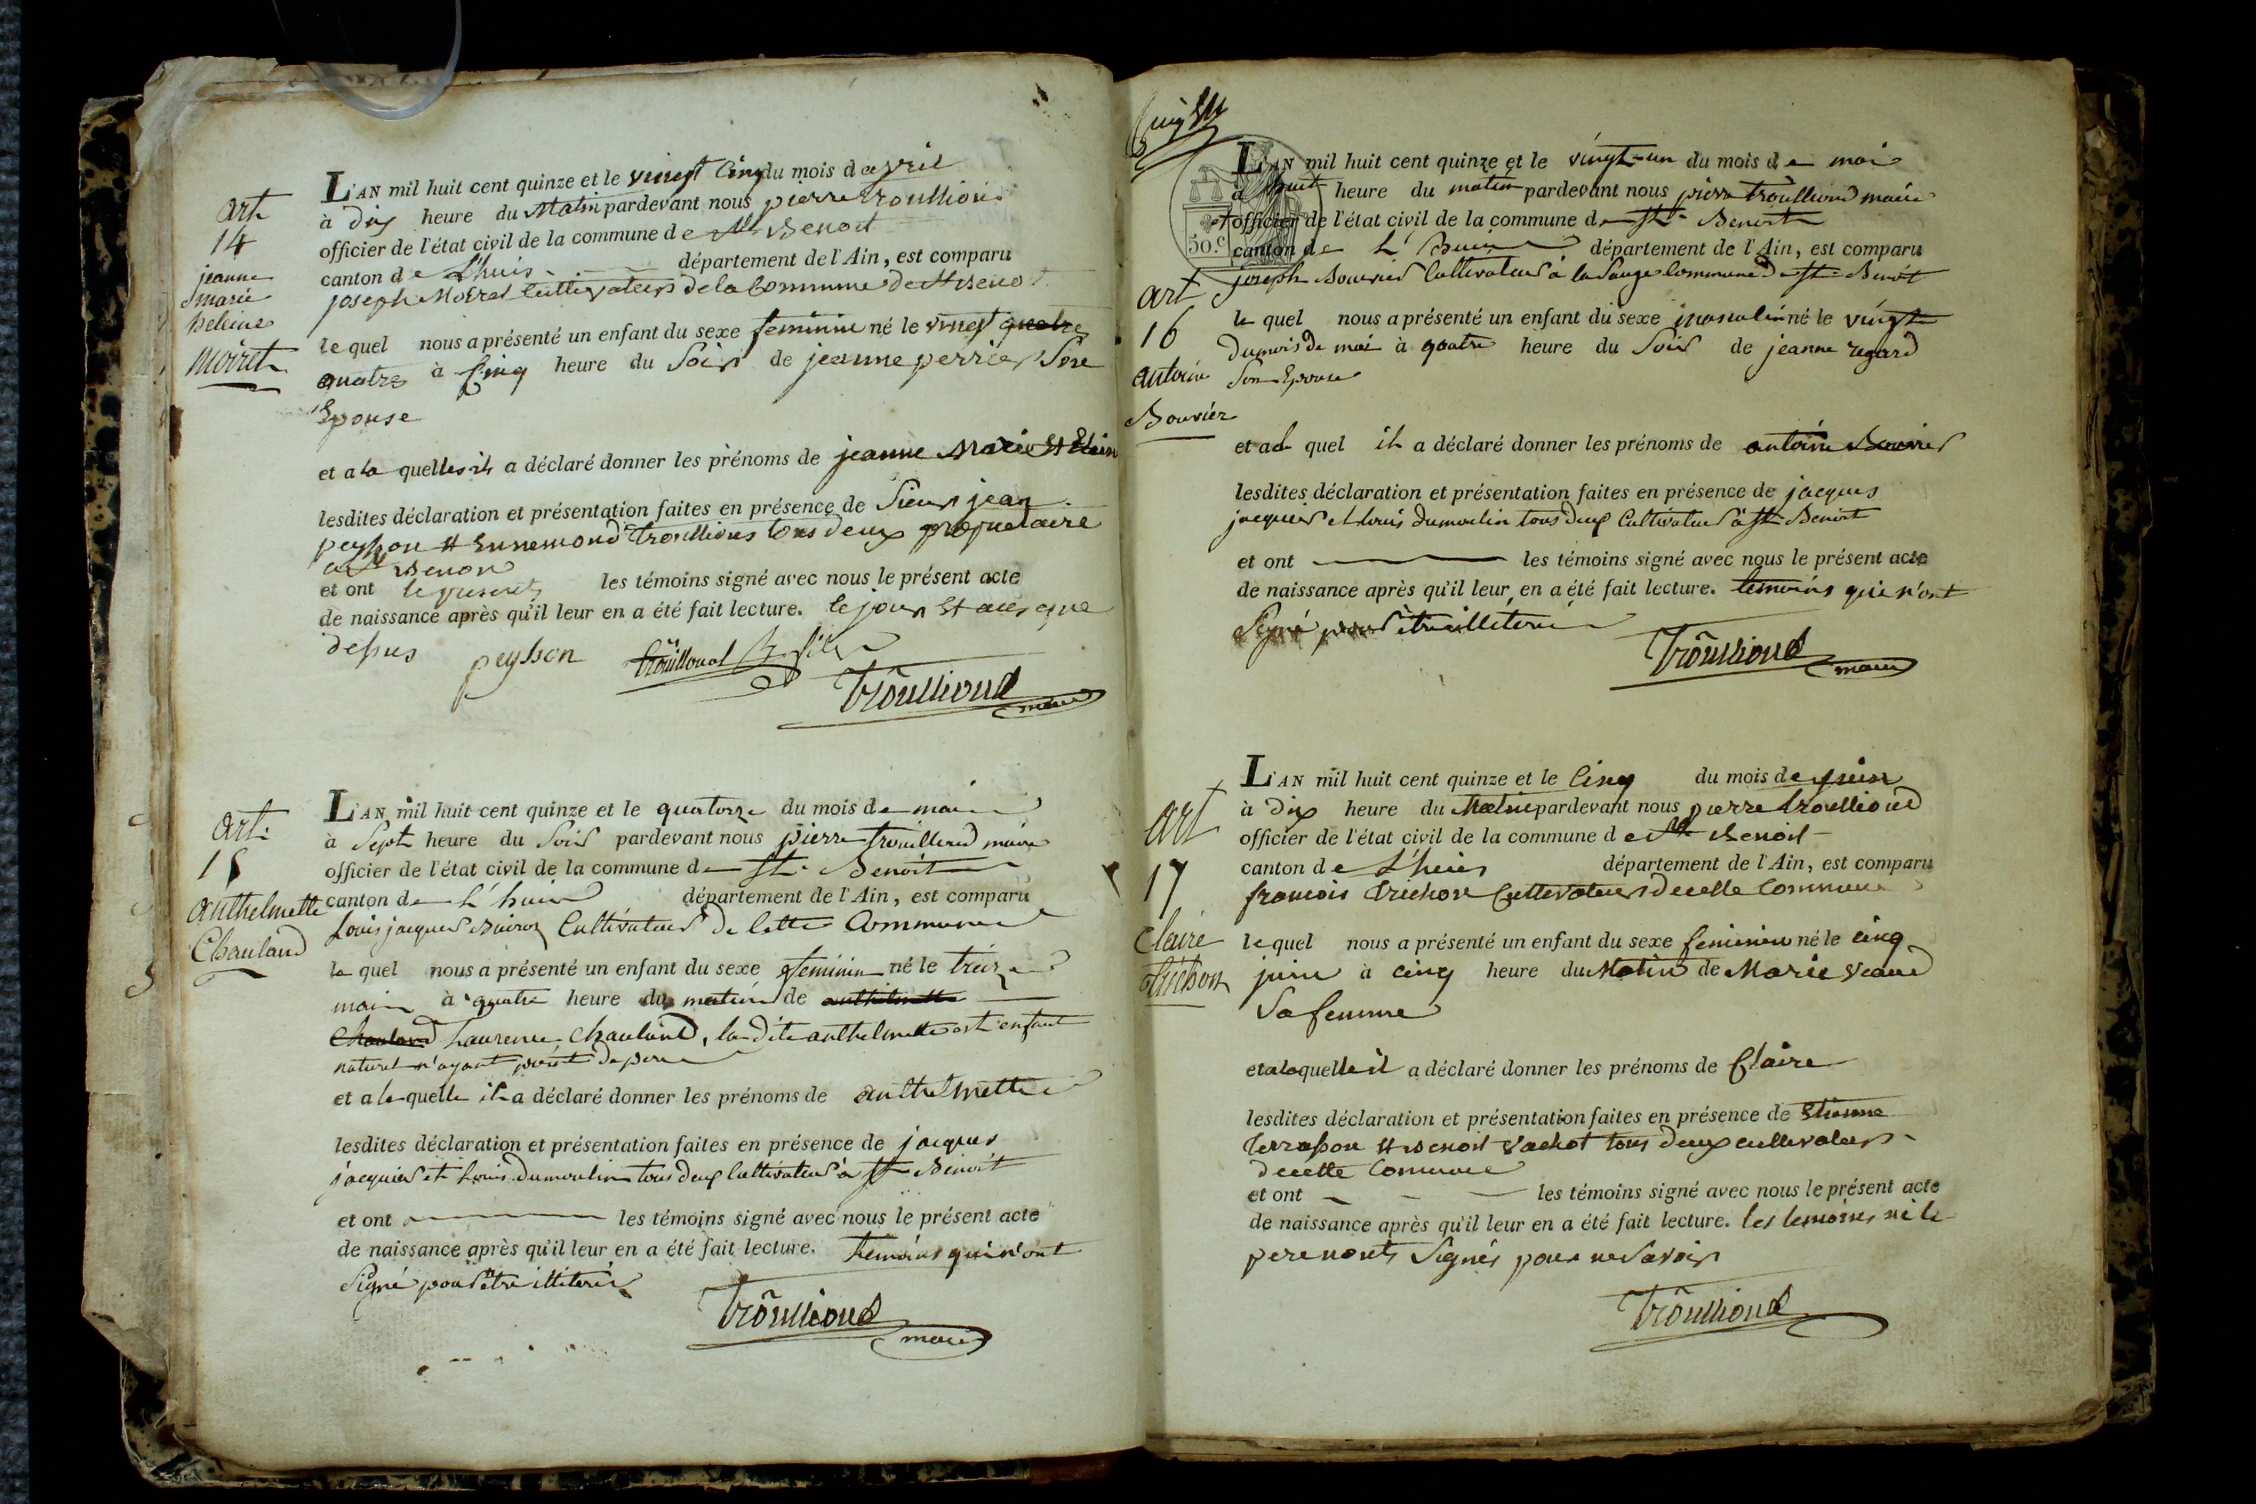 art
14
jeanne
marie
heleine
moiret
L'AN mil huit cent quinze et le vingt Cinq du mois d avril
à dix heure du Matin pardevant nous pierre trouilloud
officier de l'état civil de la commune de St Benoit
canton de L'huis département de l'Ain, est comparu
joseph Moiret Cultivateur de la Commune de St Benoit
le quel nous a présenté un enfant du sexe feminin né le vingt quatre
quatre à Cinq heure du Soir de jeanne perrier Son
Epouse
et a la quelle il a déclaré donner les prénoms de jeanne Marie Elein
lesdites déclaration et présentation faites en présence de Sieur jean
peysson et Ennemond trouilloud tous deux propriétaire
a St Benoit
et ont les témoins signé avec nous le présent acte
de naissance après qu'il leur en a été fait lecture. le jour et an que
dessus peysson trouilloud fils
Troullioud
maire
art.
15
anthelmette
Chauland
L'AN mil huit cent quinze et le quatorze du mois de mai
à Sept heure du Soir pardevant nous pierre trouilloud maire
officier de l'état civil de la commune de St. Benoit
canton de L'huis département de l'Ain, est comparu
Louis jacques Cultivateur de Cette Commune
le quel nous a présenté un enfant du sexe feminin né le treize
mai à quatre heure du matin de anthelmette
Chauland Laurence Chauland, la dite anthelmette est enfant
naturel n'ayant point de pere
et a la quelle il a déclaré donner les prénoms de anthelmette
lesdites déclaration et présentation faites en présence de jacques
jacquier et Louis dumoulin tous deux Cultivateur à St Benoit
et ont les témoins signé avec nous le présent acte
de naissance après qu'il leur en a été fait lecture. temoins qui n'ont
Signé pour être illiteré
Troullioud
maire
50.c
art
16
antoine
Bouvier
L'AN mil huit cent quinze et le vingt-un du mois de mai
à huit heure du matin pardevant nous pierre trouilloud maire
et officier de l'état civil de la commune de St. Benoit
canton de L'huis département de l'Ain, est comparu
joseph Bouvier Cultivateur à la Sauge Commune de St Benoit
le quel nous a présenté un enfant du sexe masculin né le vingt
du mois de mai à quatre heure du Soir de jeanne regard
Son Epouse
et a quel il a déclaré donner les prénoms de antoine Bouvier
lesdites déclaration et présentation faites en présence de jacques
jacquier et Louis dumoulin tous deux Cultivateur à St Benoit
et ont les témoins signé avec nous le présent acte
de naissance après qu'il leur en a été fait lecture. temoins qui n'ont
Signé pour être illiteré
Troullioud
maire
art
17
Claire
trichon
L'AN mil huit cent quinze et le Cinq du mois de juin
à dix heure du Matin pardevant nous pierre troullioud
officier de l'état civil de la commune de St Benoit
canton de L'huis département de l'Ain, est comparu
francois trichon Cultivateur de cette Commune
le quel nous a présenté un enfant du sexe feminin né le cinq
juin à cinq heure du Matin de Marie veaud
Sa femme
et a la quelle il a déclaré donner les prénoms de Claire
lesdites déclaration et présentation faites en présence de Etienne
terrasson et Benoit vachot tous deux cultivateur
de cette Commune
et ont les témoins signé avec nous le présent acte
de naissance après qu'il leur en a été fait lecture. les temoins ni le
pere nont Signés pour ne Savoir
Troullioud